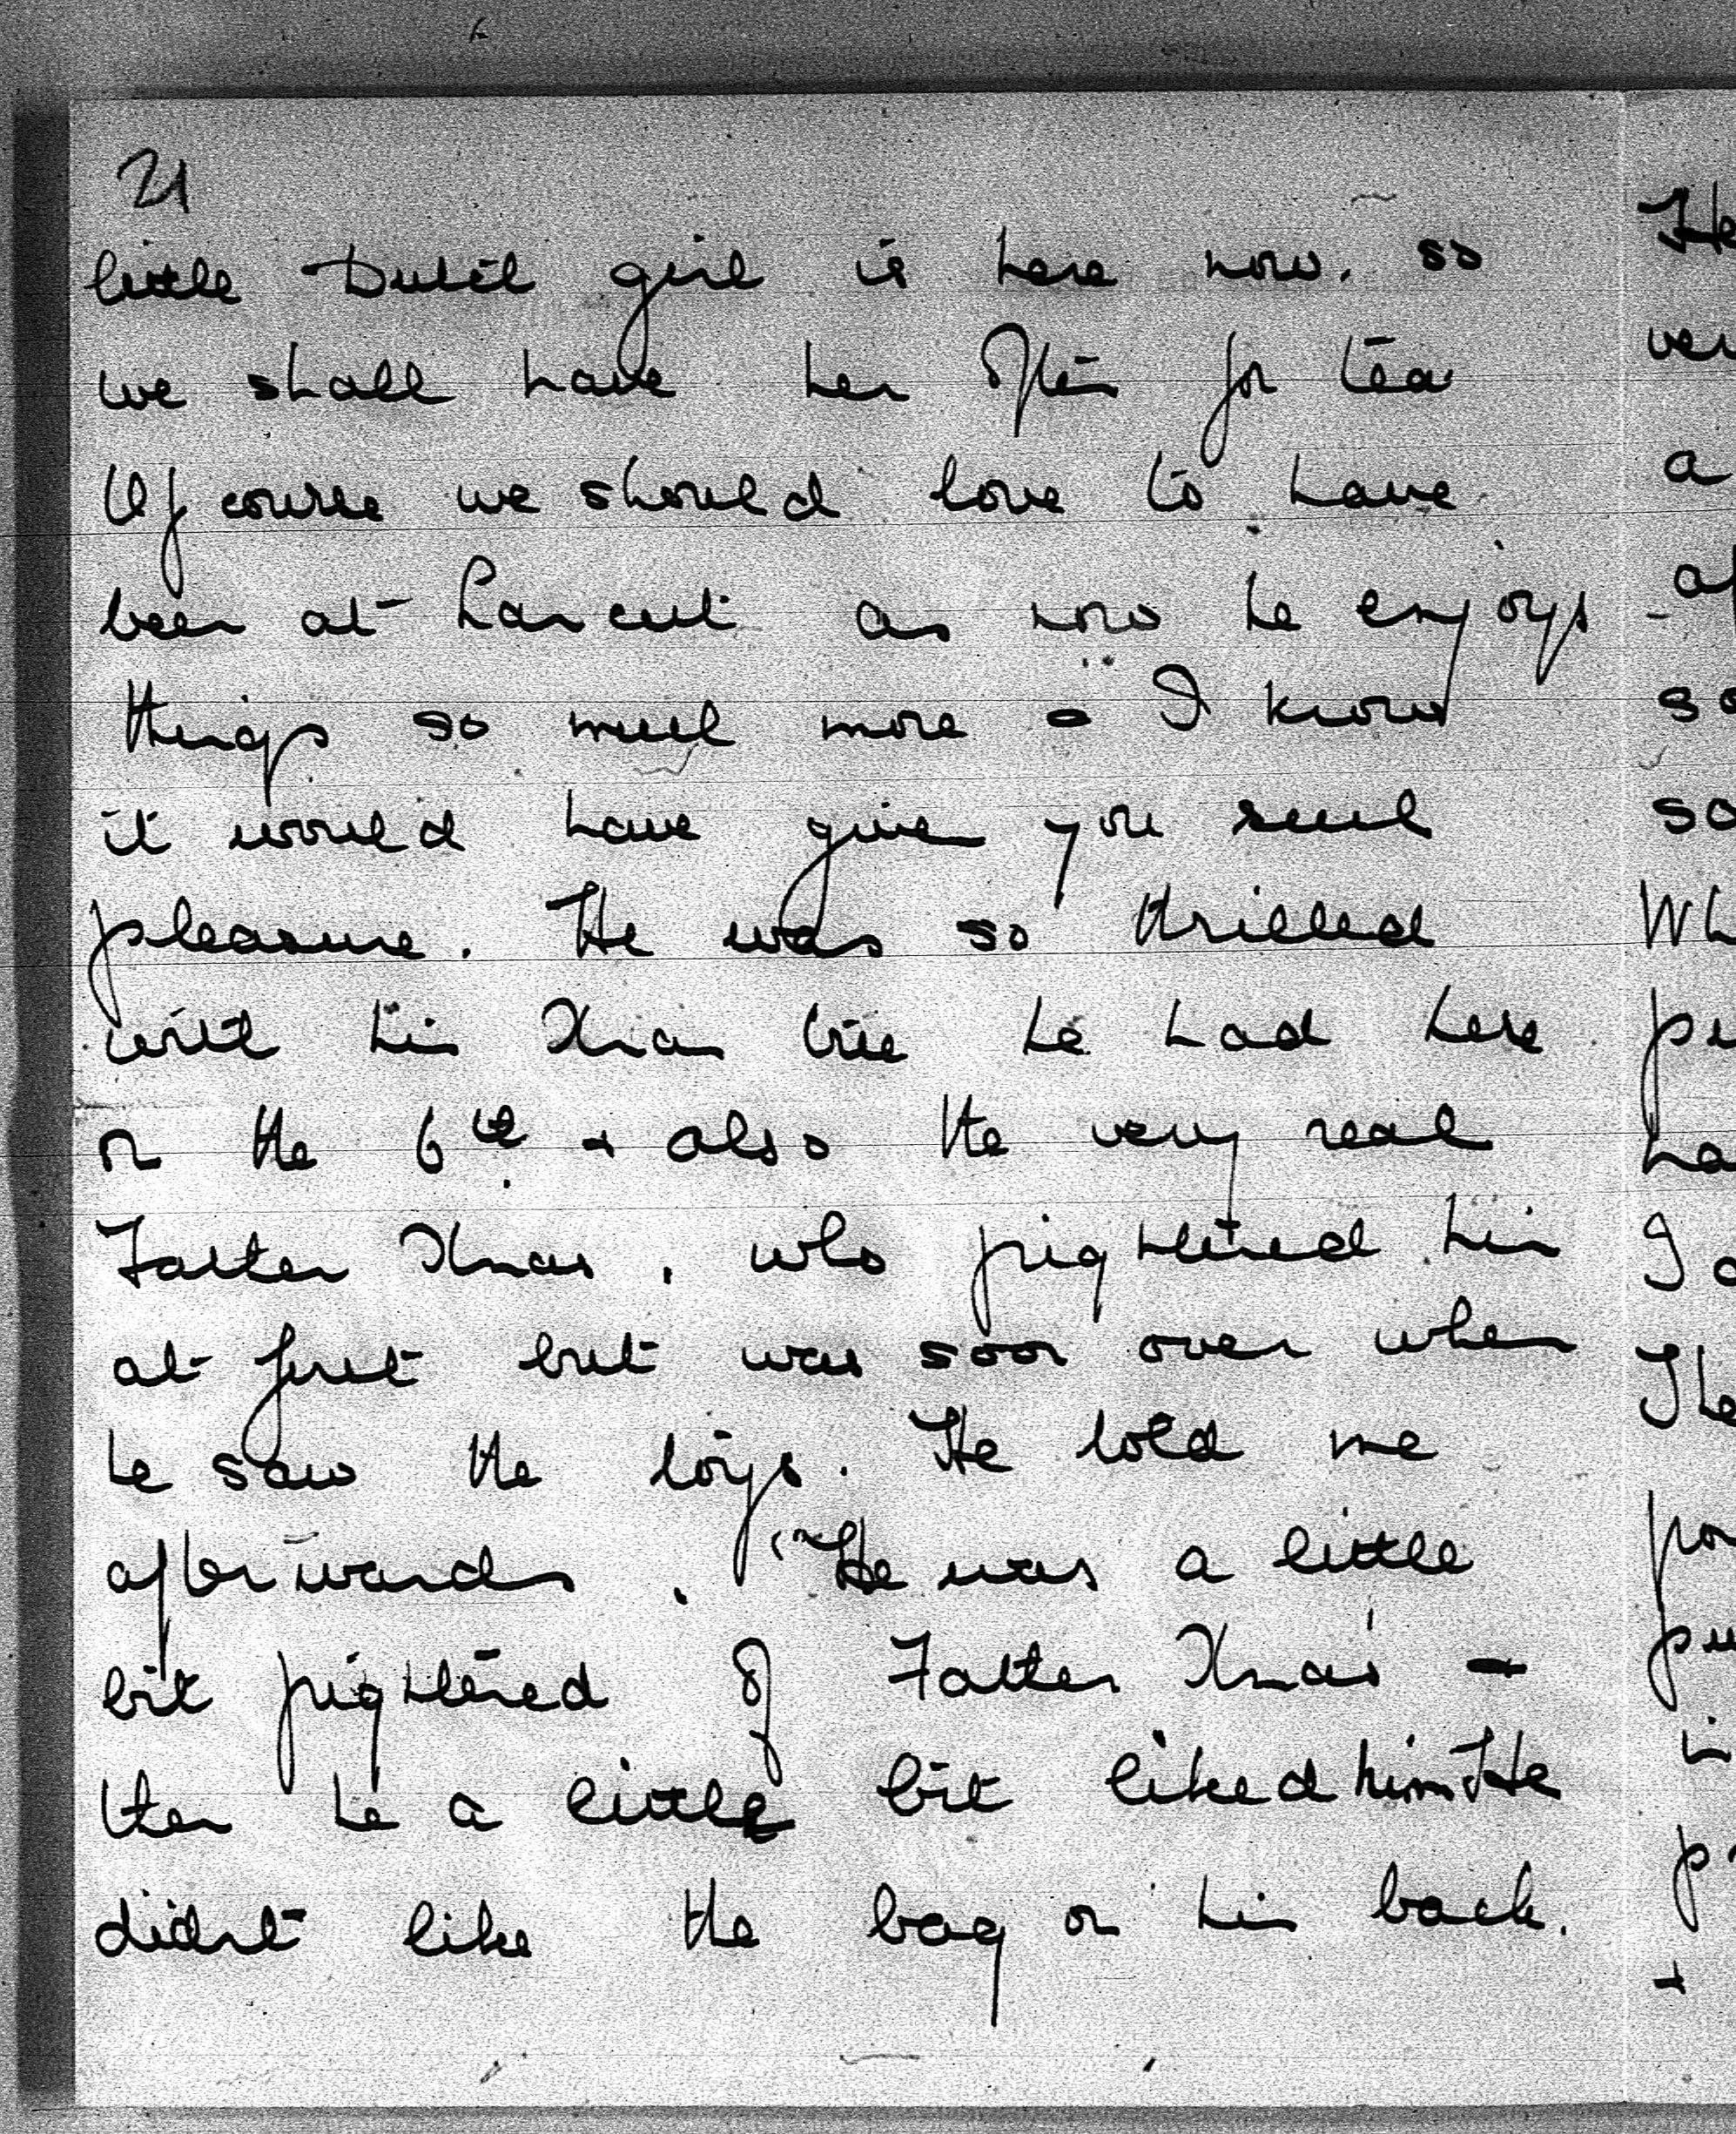 21
little Dutch girl is here now. so
we shall have her often for tea
Of course we should love to have
been at Lancut as now he enjoys
things so much more = I know
it would have given you such
pleasure. He was so thrilled
with his Xmas tree he had here
on the 6th + also the very real
Father Xmas, who frightened him
at first but was soon over when
he saw the toys. He told me
afterwards. "He was a little
bit frightened of Father Xmas -
then he a little bit liked him He
didn't like the bag on his back.